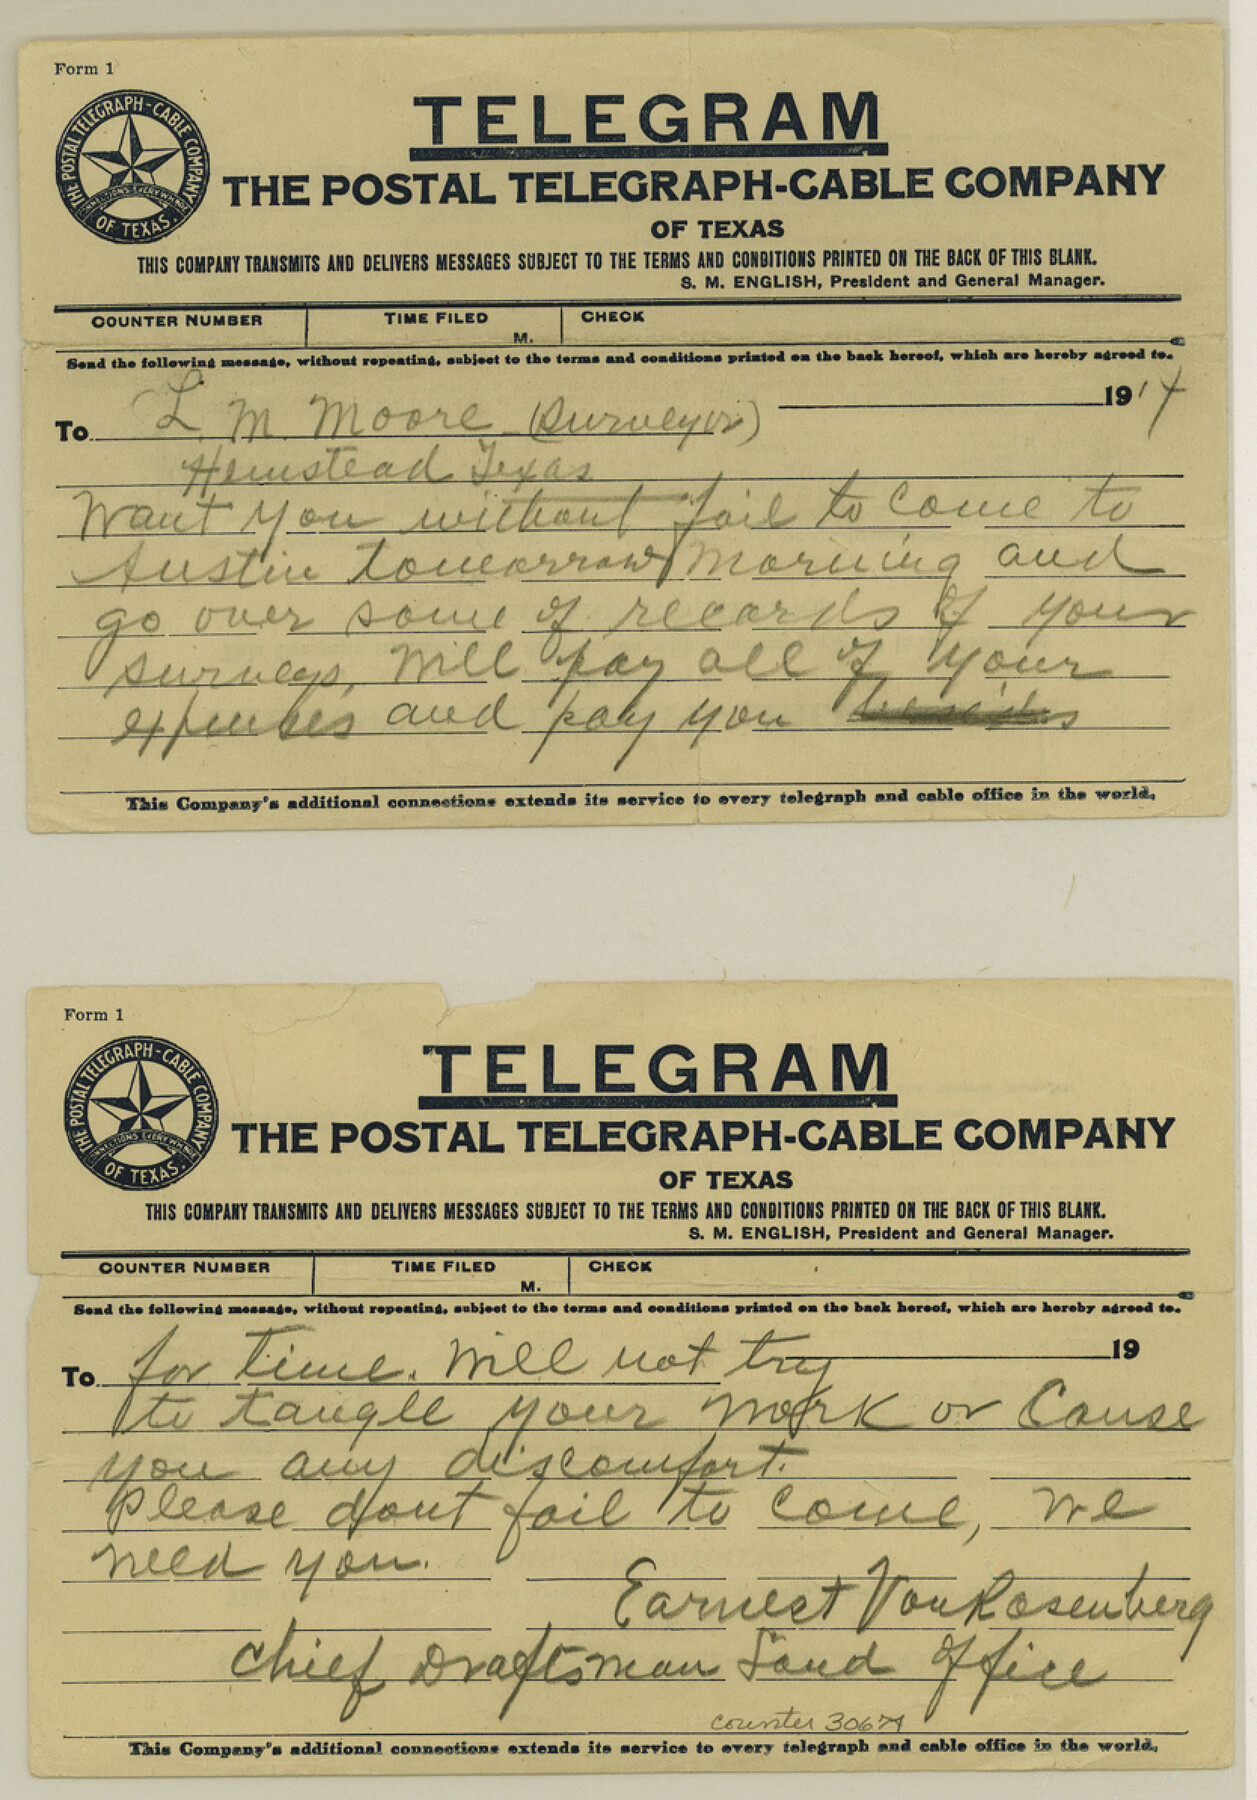 Form 1
THE POSTAL TELEGRAPH-CABLE COMPANY
CONNECTIONS EVERYWHERE
OF TEXAS.
TELEGRAM
THE POSTAL TELEGRAPH-CABLE COMPANY
OF TEXAS
THIS COMPANY TRANSMITS AND DELIVERS MESSAGES SUBJECT TO THE TERMS AND CONDITIONS PRINTED ON THE BACK OF THIS BLANK.
S. M. ENGLISH, President and General Manager.
COUNTER NUMBER TIME FILED M. CHECK
Send the following message, without repeating, subject to the terms and conditions printed on the back hereof, which are hereby agreed to.
1914
To L. M. Moore (Surveyor)
Hemstead Texas
Want you without fail to come to
Austin tomorrow morning and
go over some of records of your
surveys, Will pay all of your
expenses and pay you
This Company's additional connections extends its service to every telegraph and cable office in the world.
Form 1
THE POSTAL TELEGRAPH-CABLE COMPANY
CONNECTIONS EVERYWHERE
OF TEXAS.
TELEGRAM
THE POSTAL TELEGRAPH-CABLE COMPANY
OF TEXAS
THIS COMPANY TRANSMITS AND DELIVERS MESSAGES SUBJECT TO THE TERMS AND CONDITIONS PRINTED ON THE BACK OF THIS BLANK.
S. M. ENGLISH, President and General Manager.
COUNTER NUMBER TIME FILED M. CHECK
Send the following message, without repeating, subject to the terms and conditions printed on the back hereof, which are hereby agreed to.
19
To for time. Will not try
to tangle your work or Cause
you any discomfort.
Please dont fail to come, we
need you.
Earnest Von Rosenberg
Chief Draftsman Land Office
counter 30674
This Company's additional connections extends its service to every telegraph and cable office in the world.